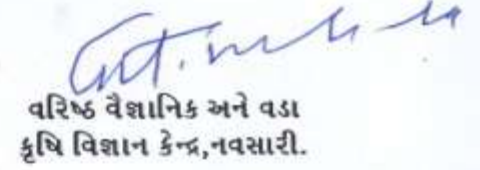 વરિષ્ઠ વૈજ્ઞાનિક અને વડા
કૃષિ વિજ્ઞાન કેન્દ્ર,નવસારી.